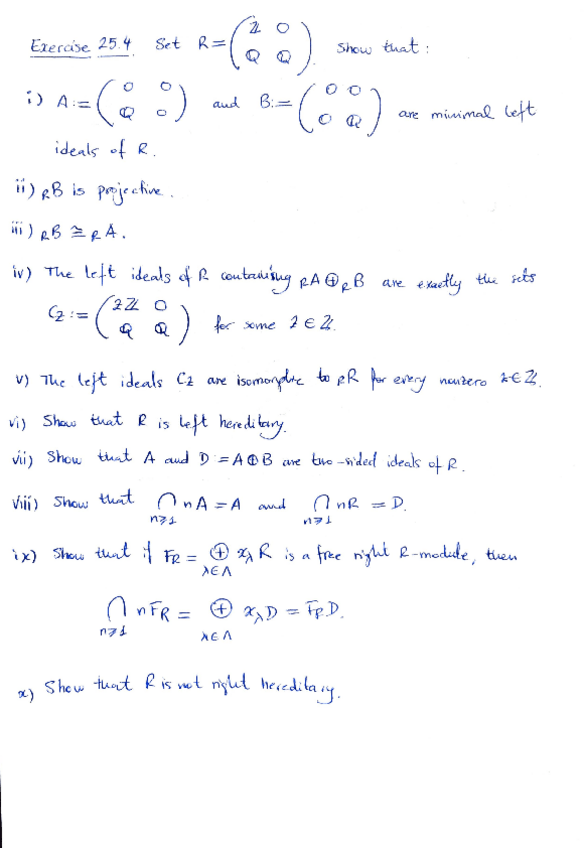 Exercise 25.4 Set R = ( ℤ 0 ; ℚ ℚ ). Show that :
i) A := ( 0 0 ; ℚ 0 ) and B := ( 0 0 ; 0 ℚ ) are minimal left
ideals of R.
ii) RB is projective.
iii) RB ≅ RA.
iv) The left ideals of R containing RA ⊕ RB are exactly the sets
Cz := ( zℤ 0 ; ℚ ℚ ) for some z ∈ ℤ.
v) The left ideals Cz are isomorphic to RR for every nonzero z ∈ ℤ.
vi) Show that R is left hereditary.
vii) Show that A and D = A ⊕ B are two-sided ideals of R.
viii) Show that ⋂n≥1 nA = A and ⋂n≥1 nR = D.
ix) Show that if FR = ⊕λ∈Λ xλ R is a free right R-module, then
⋂n≥1 nFR = ⊕λ∈Λ xλ D = FR D.
x) Show that R is not right hereditary.